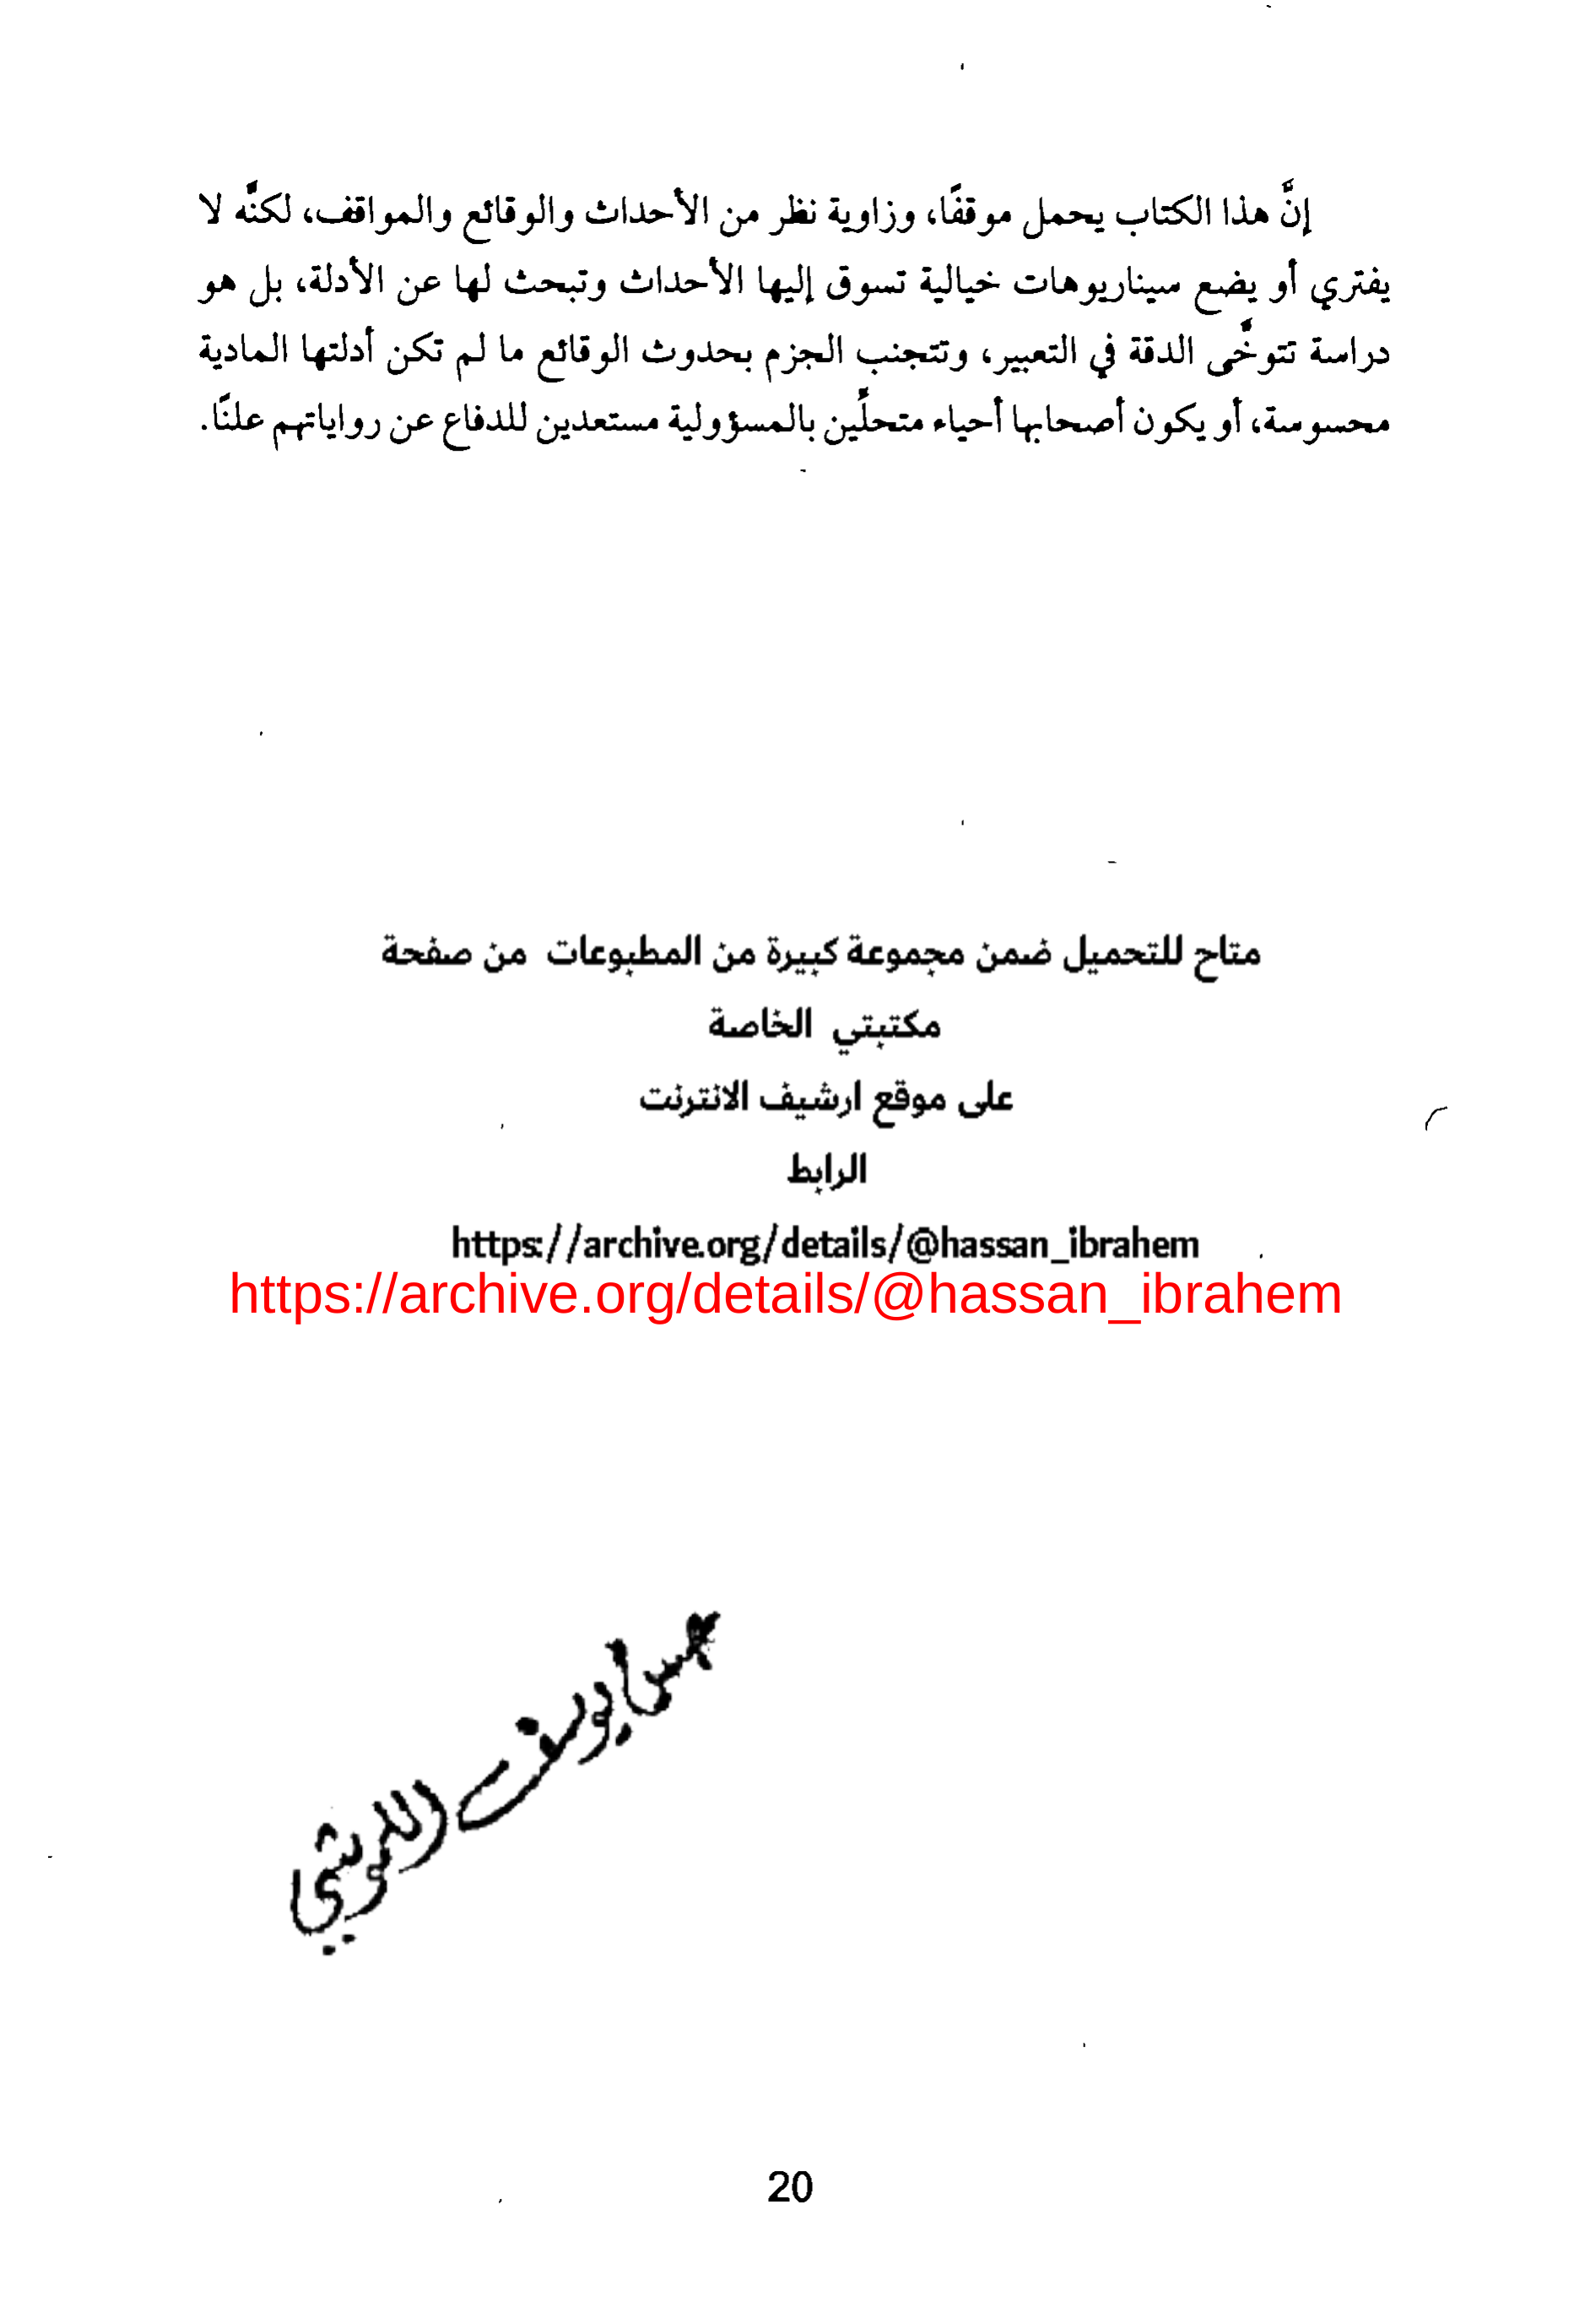 إنَّ هذا الكتاب يحمل موقفًا، وزاوية نظر من الأحداث والوقائع والمواقف، لكنَّه لا
يفتري أو يضع سيناريوهات خيالية تسوق إليها الأحداث وتبحث لها عن الأدلة، بل هو
دراسة تتوخَّى الدقة في التعبير، وتتجنب الجزم بحدوث الوقائع ما لم تكن أدلتها المادية
محسوسة، أو يكون أصحابها أحياء متحلِّين بالمسؤولية مستعدين للدفاع عن رواياتهم علنًا.
متاح للتحميل ضمن مجموعة كبيرة من المطبوعات من صفحة
مكتبتي الخاصة
على موقع ارشيف الانترنت
الرابط
https://archive.org/details/@hassan_ibrahem
https://archive.org/details/@hassan_ibrahem
يوسف
20